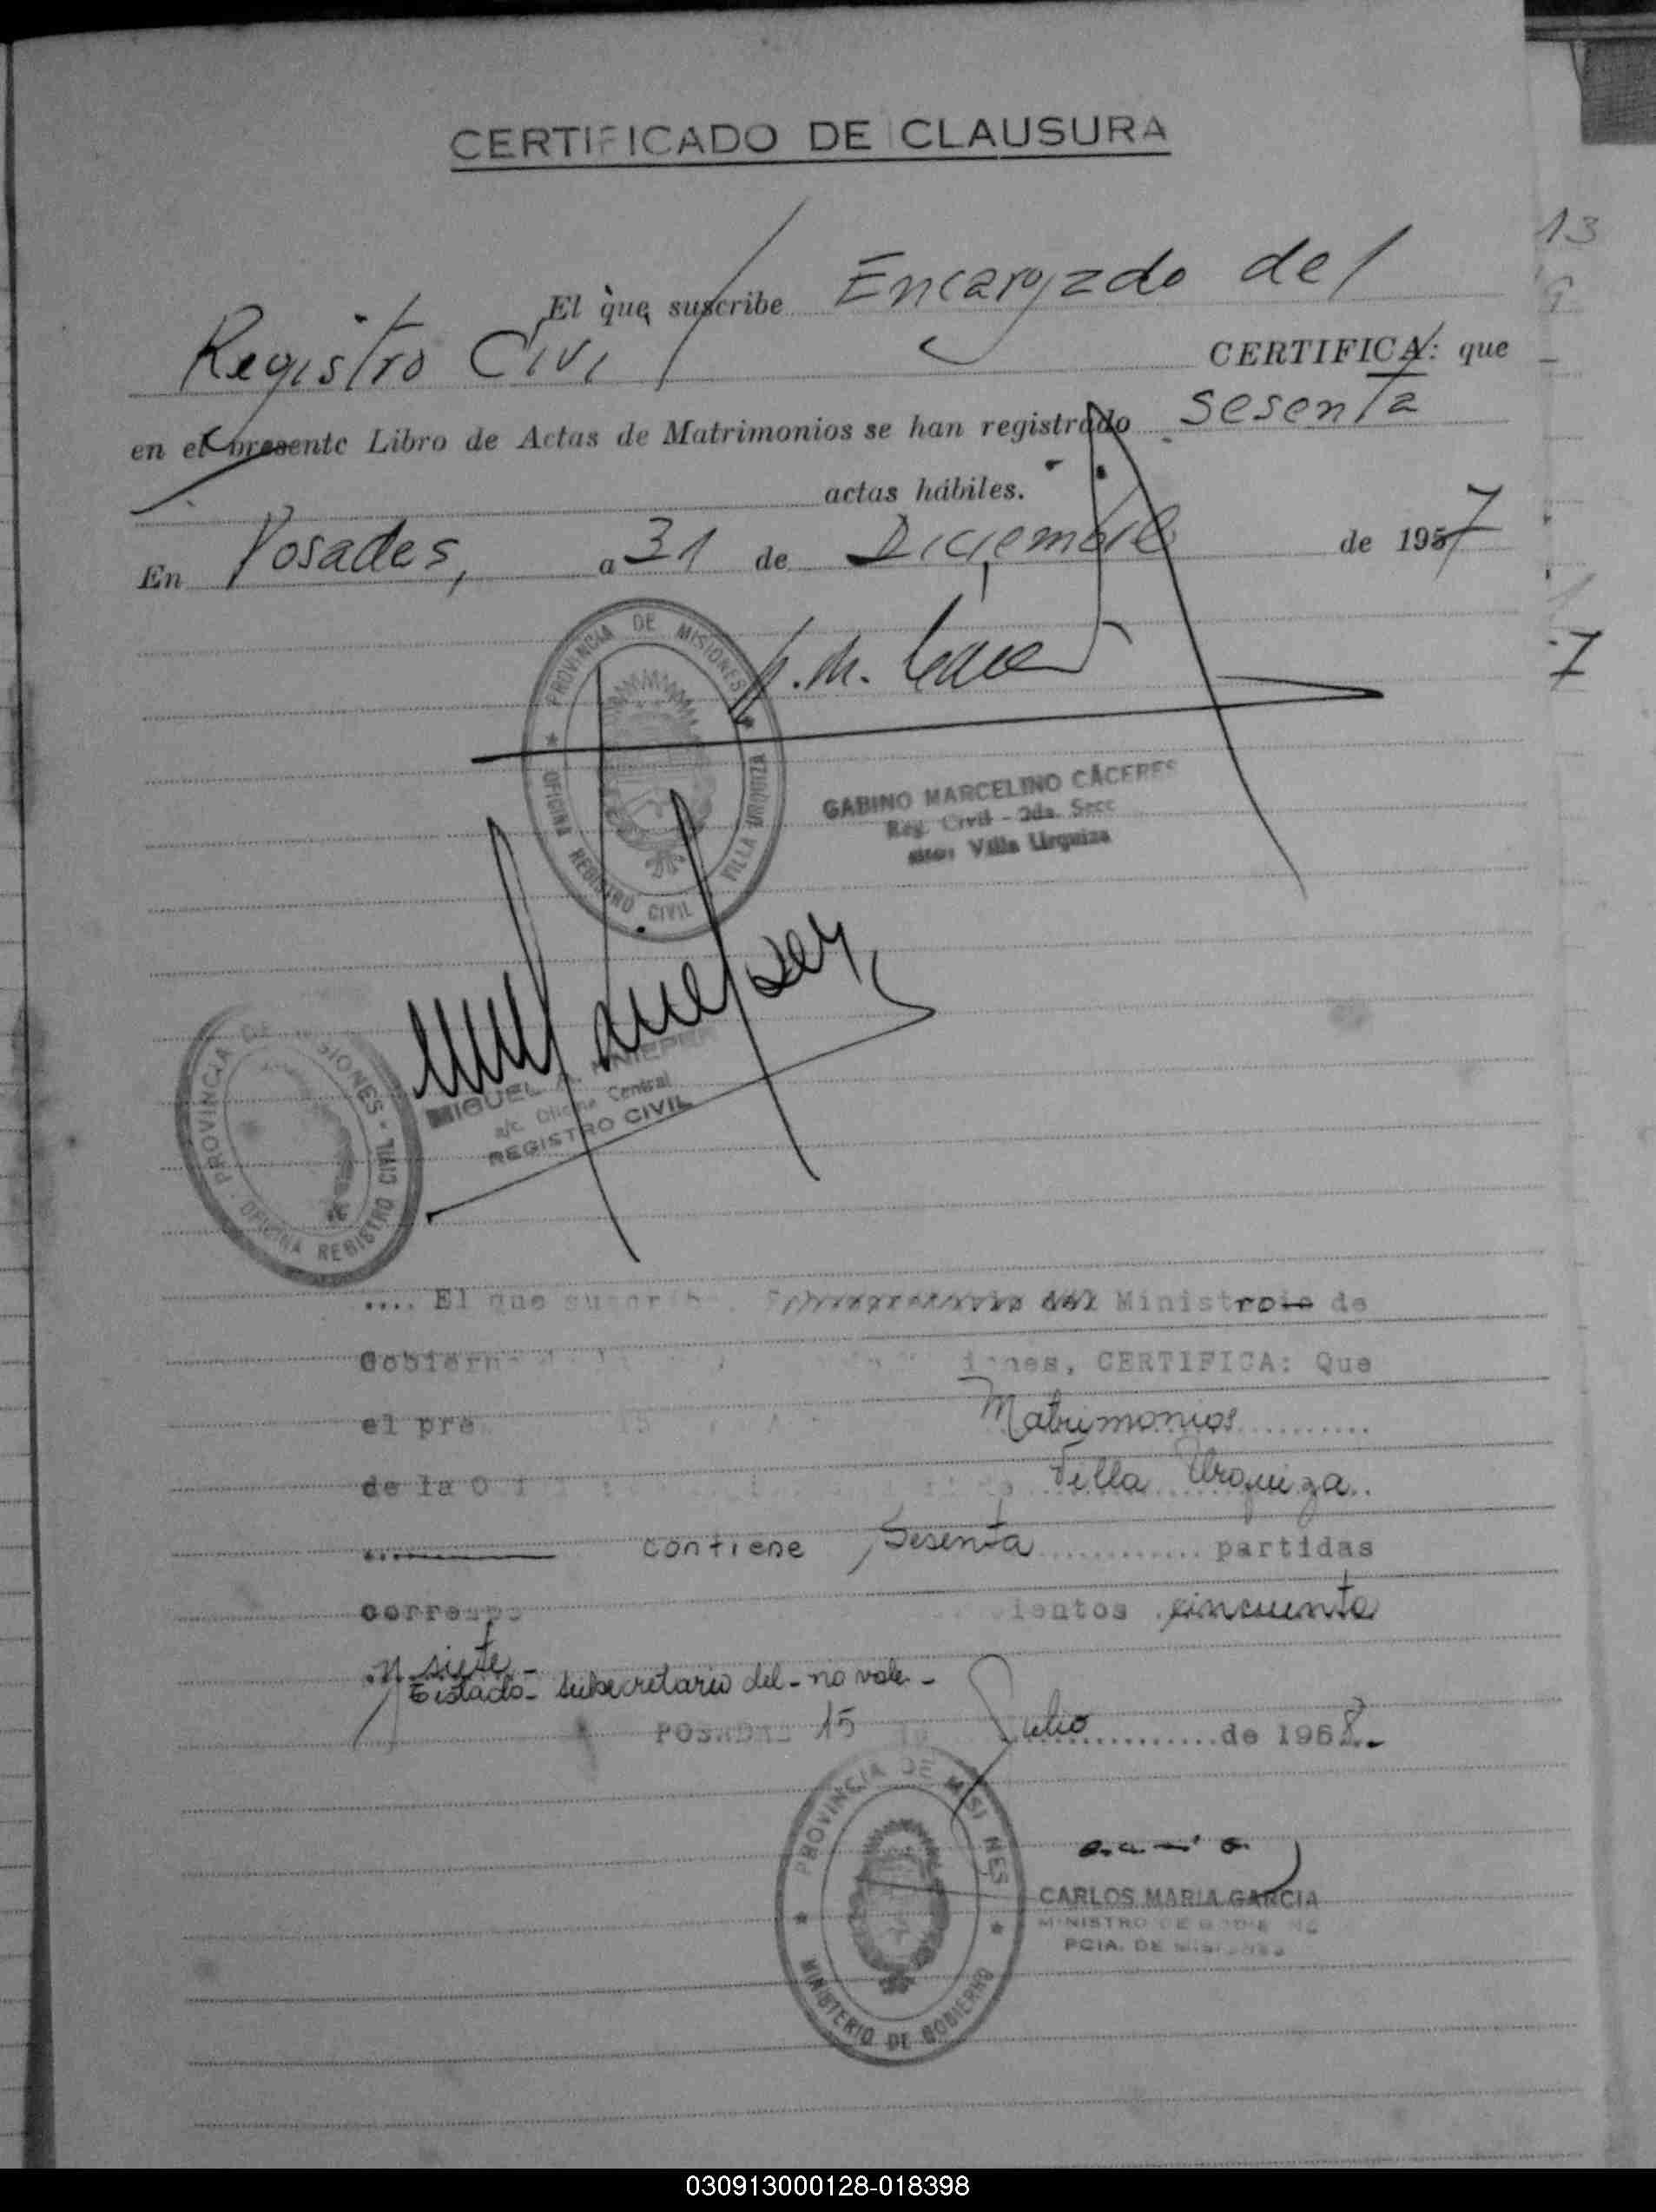 CERTIFICADO DE CLAUSURA
El que suscribe Encargado del
Registro Civil CERTIFICA: que
en el presente Libro de Actas de Matrimonios se han registrado sesenta
actas hábiles.
En Posadas, a 31 de Diciembre de 1957
PROVINCIA DE MISIONES
OFICINA REGISTRO CIVIL VILLA URQUIZA
GABINO MARCELINO CÁCERES
Reg. Civil - 2da. Secc
Villa Urquiza
PROVINCIA DE MISIONES - OFICINA REGISTRO CIVIL
MIGUEL A.
a/c. Oficina Central
REGISTRO CIVIL
.... El que suscribe, Ministro de
Gobierno CERTIFICA: Que
el pre Matrimonios
de la Villa Urquiza.
contiene Sesenta partidas
corresp ientos cincuenta
y siete.-
Testado - Subsecretario del - no vale -
POSADAS 15 Julio de 1968.-
PROVINCIA DE MISIONES
MINISTERIO DE GOBIERNO
CARLOS MARIA GARCIA
MINISTRO DE GOBIERNO
PCIA. DE MISIONES
13
9
7
030913000128-018398